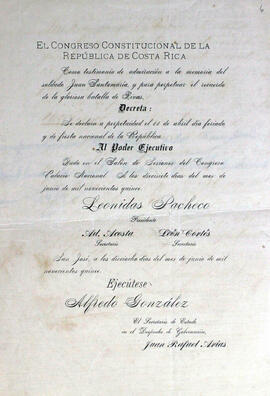 El Congreso Constitucional de la
República de Costa Rica
Como testimonio de admiración a la memoria del
soldado Juan Santamaría, y para perpetuar el recuerdo
de la gloriosa batalla de Rivas,
Decreta:
Se declara a perpetuidad el 11 de abril día feriado
y de fiesta nacional de la República.
Al Poder Ejecutivo
Dado en el Salón de Sesiones del Congreso
Palacio Nacional. A los diecisiete días del mes de
junio de mil novecientos quince.
Leonidas Pacheco
Presidente
Ad. Acosta León Cortés
Secretario Secretario
San José, a los dieciocho días del mes de junio de mil
novecientos quince.
Ejecútese
Alfredo González
El Secretario de Estado
en el Despacho de Gobernación,
Juan Rafael Arias